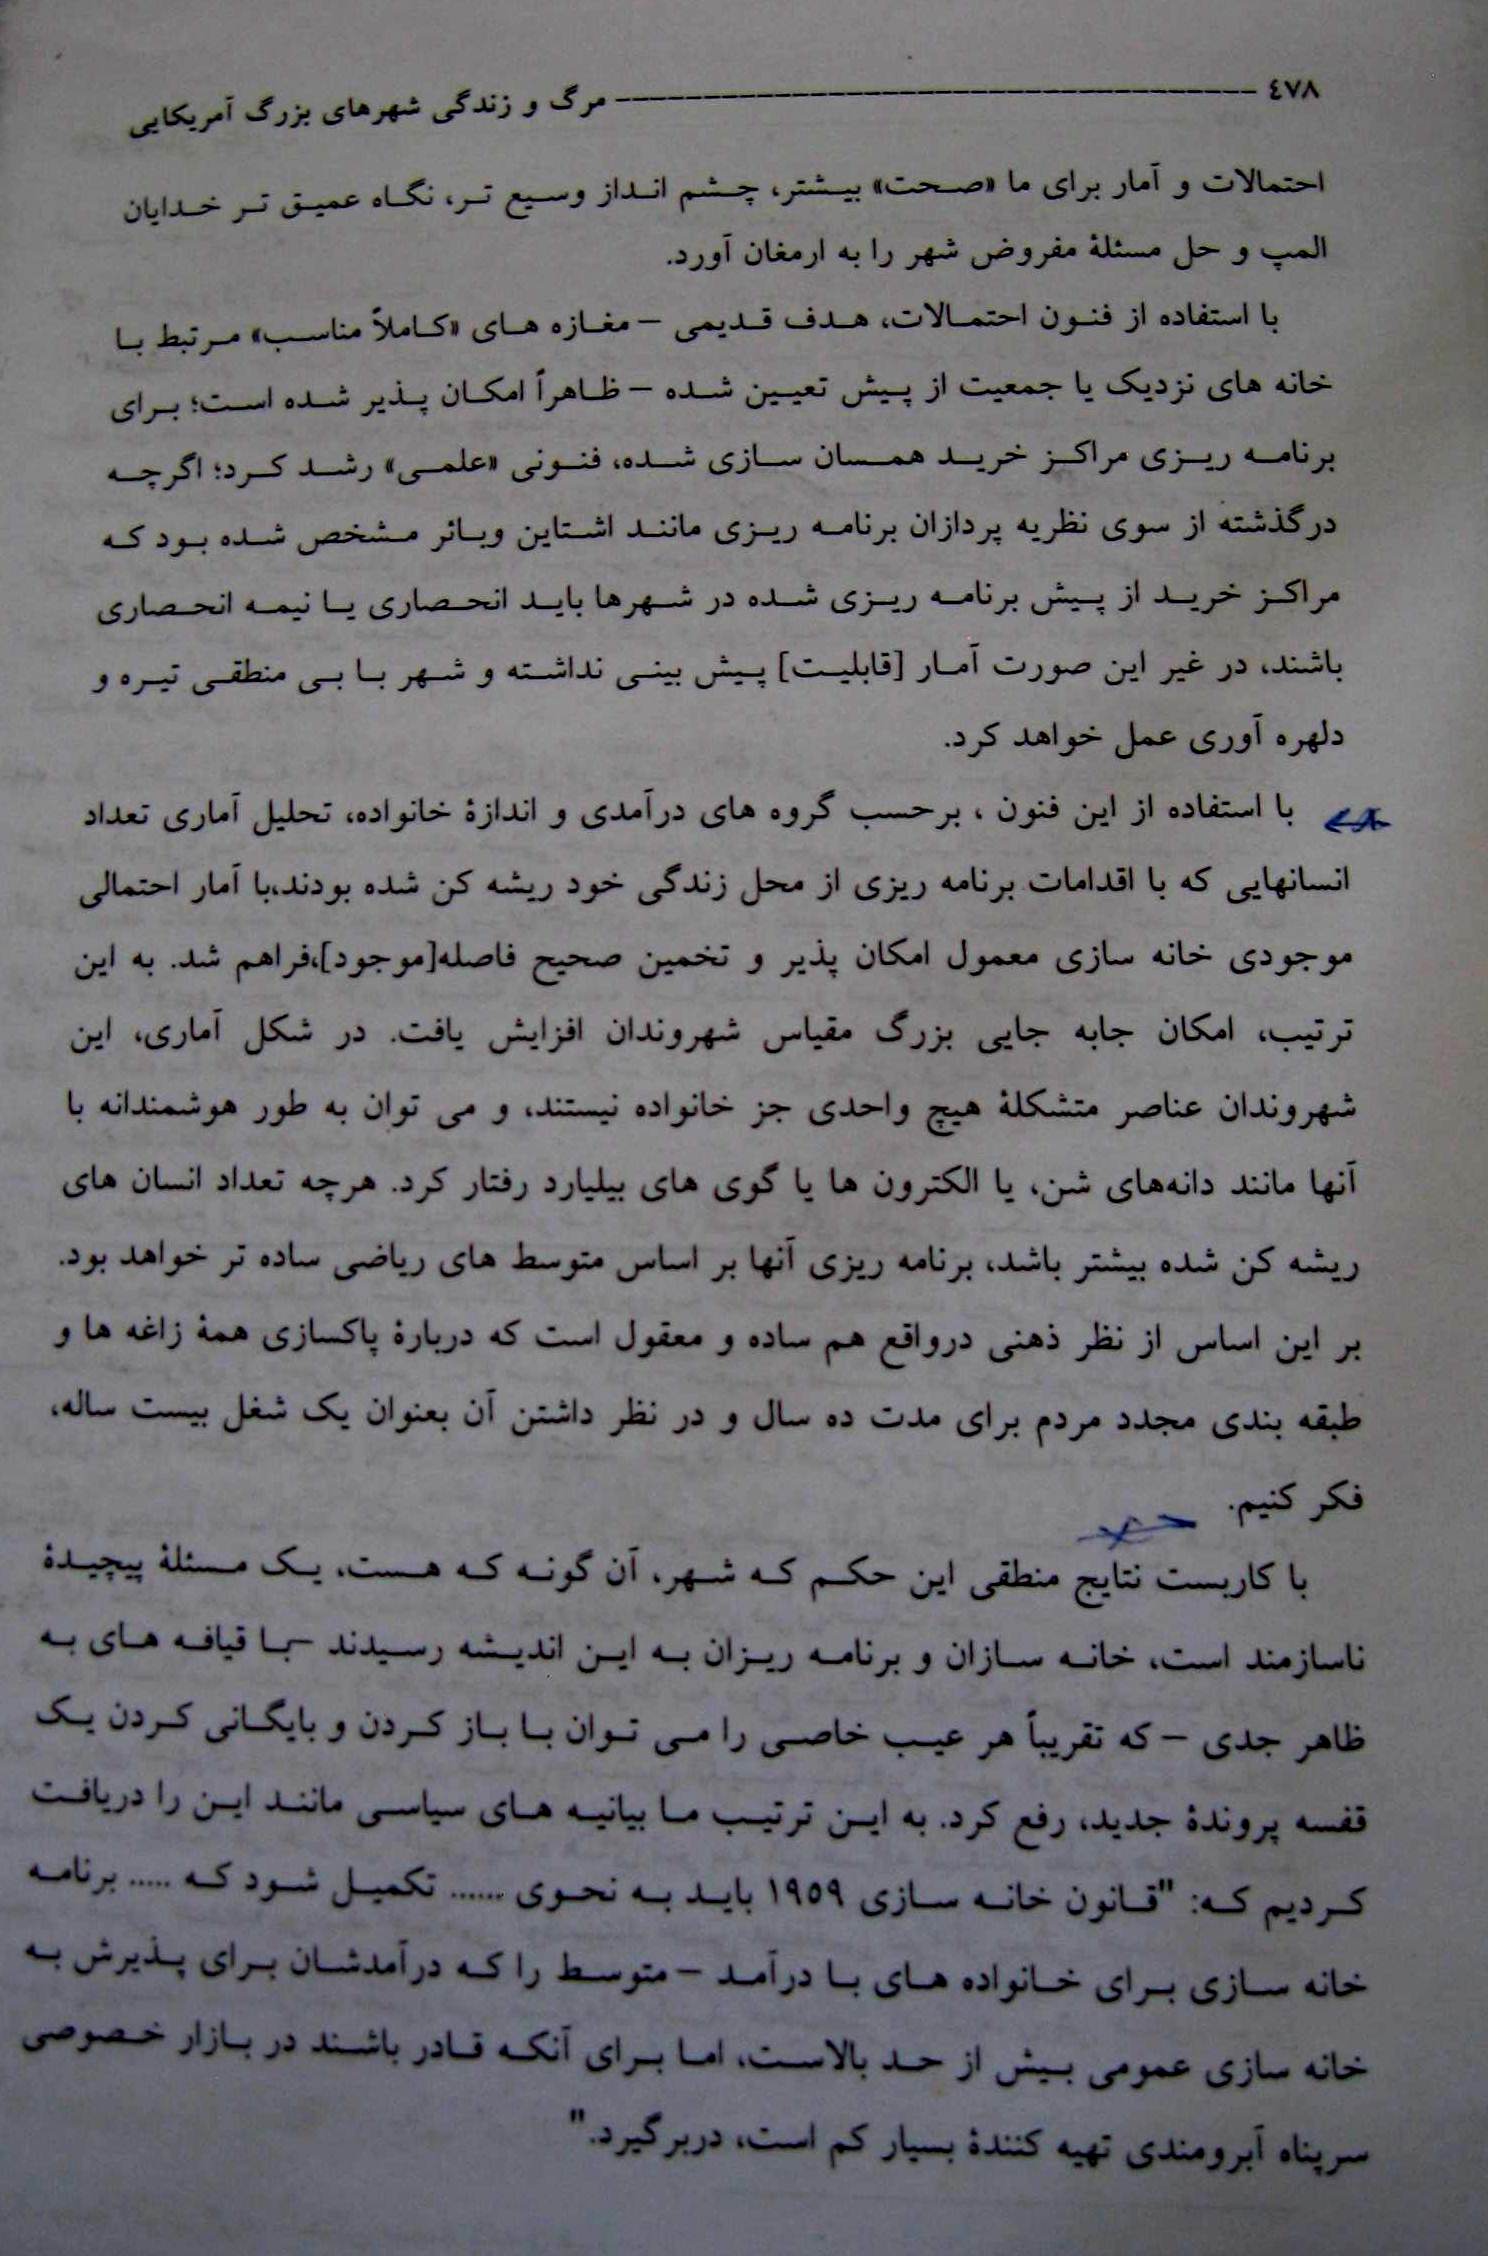 ٤٧٨ ---------------------------------------- مرگ و زندگی شهرهای بزرگ آمریکایی
احتمالات و آمار برای ما «صحت» بیشتر، چشم انداز وسیع تر، نگاه عمیق تر خدایان
المپ و حل مسئلهٔ مفروض شهر را به ارمغان آورد.
با استفاده از فنون احتمالات، هدف قدیمی – مغازه های «کاملاً مناسب» مرتبط با
خانه های نزدیک یا جمعیت از پیش تعیین شده – ظاهراً امکان پذیر شده است؛ برای
برنامه ریزی مراکز خرید همسان سازی شده، فنونی «علمی» رشد کرد؛ اگرچه
درگذشته از سوی نظریه پردازان برنامه ریزی مانند اشتاین وبائر مشخص شده بود که
مراکز خرید از پیش برنامه ریزی شده در شهرها باید انحصاری یا نیمه انحصاری
باشند، در غیر این صورت آمار [قابلیت] پیش بینی نداشته و شهر با بی منطقی تیره و
دلهره آوری عمل خواهد کرد.
با استفاده از این فنون ، برحسب گروه های درآمدی و اندازهٔ خانواده، تحلیل آماری تعداد
انسانهایی که با اقدامات برنامه ریزی از محل زندگی خود ریشه کن شده بودند،با آمار احتمالی
موجودی خانه سازی معمول امکان پذیر و تخمین صحیح فاصله[موجود]،فراهم شد. به این
ترتیب، امکان جابه جایی بزرگ مقیاس شهروندان افزایش یافت. در شکل آماری، این
شهروندان عناصر متشکلهٔ هیچ واحدی جز خانواده نیستند، و می توان به طور هوشمندانه با
آنها مانند دانه‌های شن، یا الکترون ها یا گوی های بیلیارد رفتار کرد. هرچه تعداد انسان های
ریشه کن شده بیشتر باشد، برنامه ریزی آنها بر اساس متوسط های ریاضی ساده تر خواهد بود.
بر این اساس از نظر ذهنی درواقع هم ساده و معقول است که دربارهٔ پاکسازی همهٔ زاغه ها و
طبقه بندی مجدد مردم برای مدت ده سال و در نظر داشتن آن بعنوان یک شغل بیست ساله،
فکر کنیم.
با کاربست نتایج منطقی این حکم که شهر، آن گونه که هست، یک مسئلهٔ پیچیدهٔ
ناسازمند است، خانه سازان و برنامه ریزان به این اندیشه رسیدند –با قیافه های به
ظاهر جدی – که تقریباً هر عیب خاصی را می توان با باز کردن و بایگانی کردن یک
قفسه پروندهٔ جدید، رفع کرد. به این ترتیب ما بیانیه های سیاسی مانند این را دریافت
کردیم که: "قانون خانه سازی ١٩٥٩ باید به نحوی ...... تکمیل شود که ..... برنامه
خانه سازی برای خانواده های با درآمد – متوسط را که درآمدشان برای پذیرش به
خانه سازی عمومی بیش از حد بالاست، اما برای آنکه قادر باشند در بازار خصوصی
سرپناه آبرومندی تهیه کنندهٔ بسیار کم است، دربرگیرد."